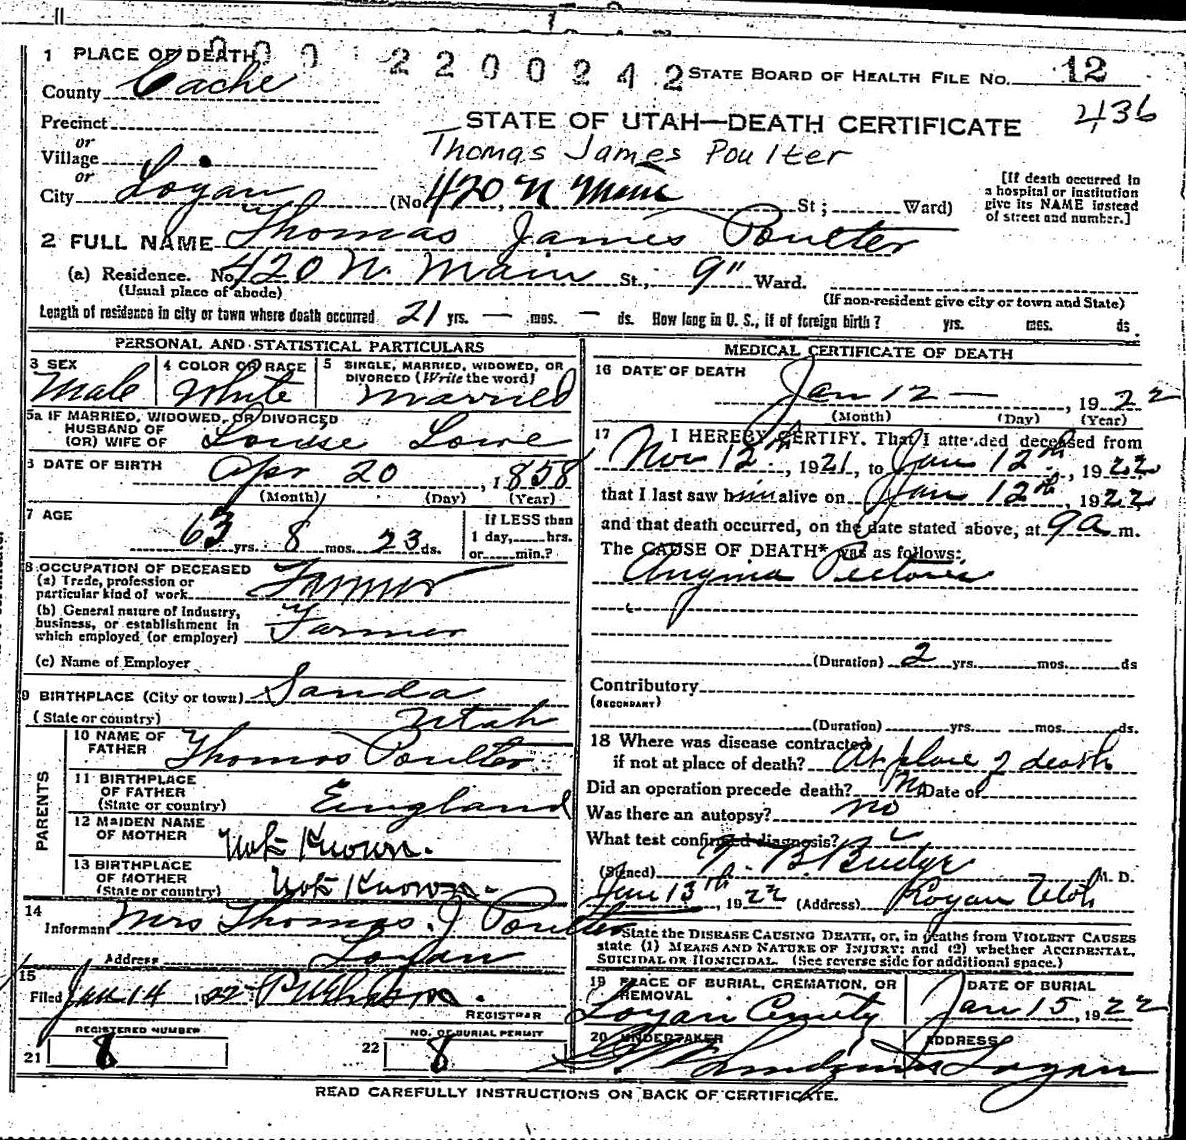 0001 2200242
1 PLACE OF DEATH
STATE BOARD OF HEALTH FILE NO. 12
County Cache
436
Precinct
STATE OF UTAH—DEATH CERTIFICATE
or
Village
Thomas James Poulter
or
City Logan (No. 420 N Main St; Ward)
[If death occurred in a hospital or institution give its NAME instead of street and number.]
2 FULL NAME Thomas James Poulter
(a) Residence. No. 420 N. Main St., 9" Ward.
(Usual place of abode) (If non-resident give city or town and State)
Length of residence in city or town where death occurred 21 yrs. — mos. — ds. How long in U. S., if of foreign birth? yrs. mos. ds.
PERSONAL AND STATISTICAL PARTICULARS
3 SEX Male
4 COLOR OR RACE White
5 SINGLE, MARRIED, WIDOWED, OR DIVORCED (Write the word) Married
5a IF MARRIED, WIDOWED, OR DIVORCED
HUSBAND OF
(OR) WIFE OF Louise Lowe
6 DATE OF BIRTH Apr 20, 1858
(Month) (Day) (Year)
7 AGE 63 yrs. 8 mos. 23 ds.
If LESS than 1 day, hrs. or min.?
8 OCCUPATION OF DECEASED
(a) Trade, profession or particular kind of work Farmer
(b) General nature of Industry, business, or establishment in which employed (or employer) Farmer
(c) Name of Employer
9 BIRTHPLACE (City or town) Sanda
(State or country) Utah
PARENTS
10 NAME OF FATHER Thomas Poulter
11 BIRTHPLACE OF FATHER (State or country) England
12 MAIDEN NAME OF MOTHER Not Known.
13 BIRTHPLACE OF MOTHER (State or country) Not Known.
14
Informant Mrs Thomas. J Poulter
Address Logan
15
Filed Jan 14 1922
REGISTRAR
REGISTERED NUMBER
21 8
NO. OF BURIAL PERMIT
22 8
MEDICAL CERTIFICATE OF DEATH
16 DATE OF DEATH
Jan 12 —, 1922
(Month) (Day) (Year)
17 I HEREBY CERTIFY, That I attended deceased from
Nov 12th, 1921, to Jan 12th, 1922
that I last saw him alive on Jan 12th, 1922
and that death occurred, on the date stated above, at 9a m.
The CAUSE OF DEATH* was as follows:
Angina Pectoris
(Duration) 2 yrs. mos. ds
Contributory
(SECONDARY)
(Duration) yrs. mos. ds.
18 Where was disease contracted
if not at place of death? At place of death
Did an operation precede death? No Date of
Was there an autopsy? no
What test confirmed diagnosis?
(Signed) B. Budge M. D.
Jan 13th, 1922 (Address) Logan Utah
State the DISEASE CAUSING DEATH, or, in deaths from VIOLENT CAUSES
state (1) MEANS AND NATURE OF INJURY; and (2) whether ACCIDENTAL,
SUICIDAL OR HOMICIDAL. (See reverse side for additional space.)
19 PLACE OF BURIAL, CREMATION, OR REMOVAL
Logan Cemety
DATE OF BURIAL
Jan 15, 1922
20 UNDERTAKER
ADDRESS
Logan
READ CAREFULLY INSTRUCTIONS ON BACK OF CERTIFICATE.